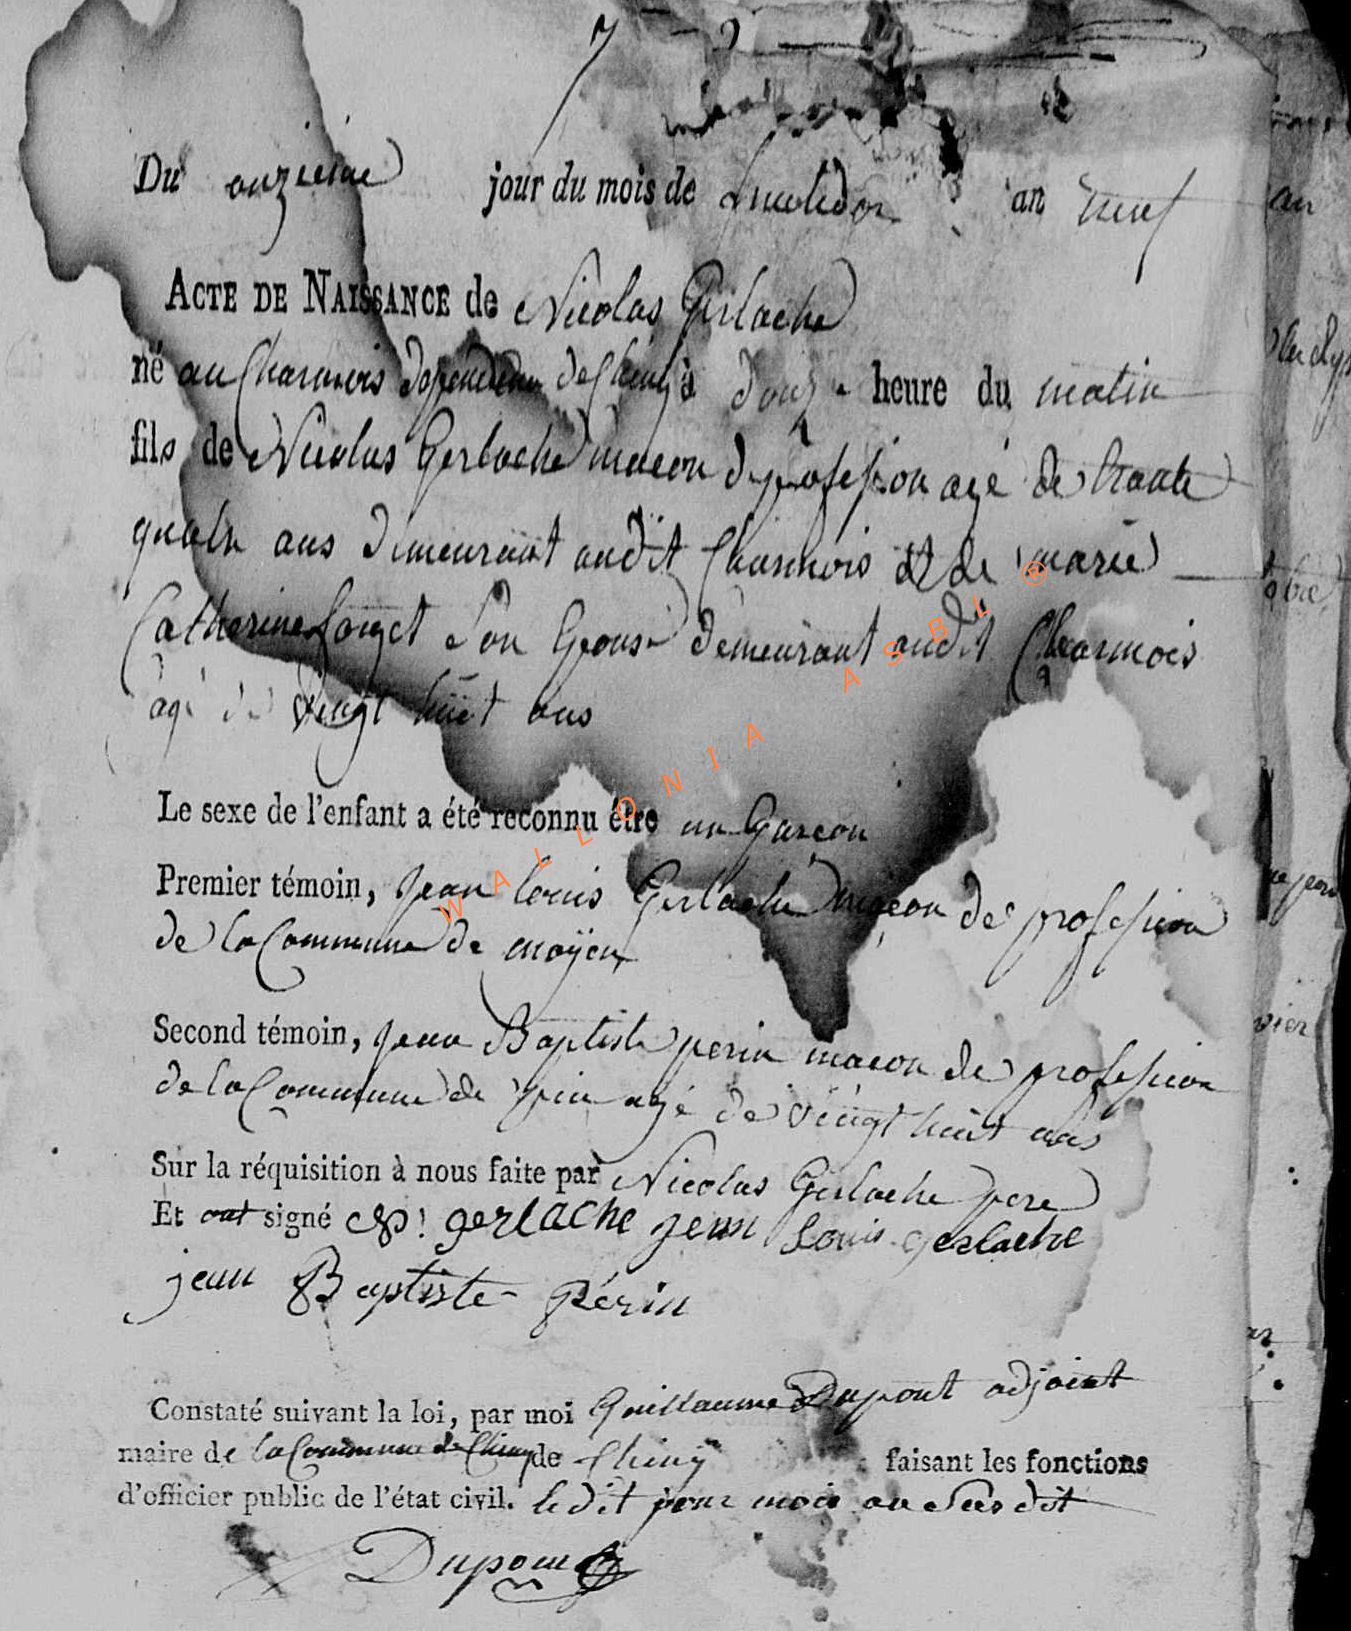 7
Du onzieme jour du mois de fructidor an neuf
ACTE DE NAISSANCE de Nicolas Gerlache
né au Charmois dependance de Chiny à douz heure du matin
fils de Nicolas Gerlache macon de profession agé de trante
quatr ans demeurant audit Charmois et de marie
Catherine forget son Epouse demeurant audit Charmois
agé de vingt huit ans
Le sexe de l'enfant a été reconnu être un Garcon
Premier témoin, Jean louis Gerlache maçon de profession
de la Commune de moÿen
Second témoin, Jean Baptiste perin macon de profession
de la Commune de pin agé de vingt huit ans
Sur la réquisition à nous faite par Nicolas Gerlache pere
Et ont signé gerlache jean Louis gerlache
jean Baptiste Périn
Constaté suivant la loi, par moi Guillaume Dupont adjoint
maire de la Commune de Chiny de Chinÿ faisant les fonctions
d'officier public de l'état civil. le dit jour mois an susdit
Dupont
WALLONIA ASBL ®